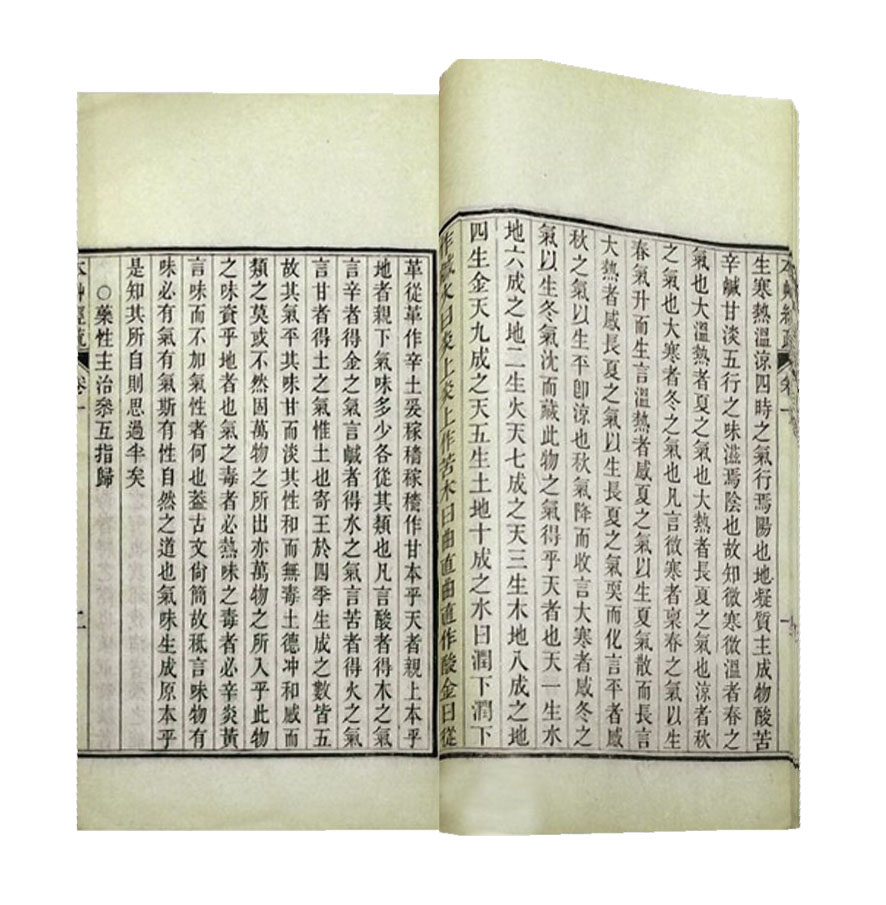 本艸經疏 卷一 一
生寒熱溫涼四時之氣行焉陽也地凝質主成物酸苦
辛鹹甘淡五行之味滋焉陰也故知微寒微溫者春之
氣也大溫熱者夏之氣也大熱者長夏之氣也涼者秋
之氣也大寒者冬之氣也凡言微寒者稟春之氣以生
春氣升而生言溫熱者感夏之氣以生夏氣散而長言
大熱者感長夏之氣以生長夏之氣耎而化言平者感
秋之氣以生平卽涼也秋氣降而收言大寒者感冬之
氣以生冬氣沈而藏此物之氣得乎天者也天一生水
地六成之地二生火天七成之天三生木地八成之地
四生金天九成之天五生土地十成之水曰潤下潤下
作鹹火曰炎上炎上作苦木曰曲直曲直作酸金曰從
革從革作辛土爰稼穡稼穡作甘本乎天者親上本乎
地者親下氣味多少各從其類也凡言酸者得木之氣
言辛者得金之氣言鹹者得水之氣言苦者得火之氣
言甘者得土之氣惟土也寄王於四季生成之數皆五
故其氣平其味甘而淡其性和而無毒土德冲和感而
類之莫或不然固萬物之所出亦萬物之所入乎此物
之味資乎地者也氣之毒者必熱味之毒者必辛炎黃
言味而不加氣性者何也葢古文尙簡故秪言味物有
味必有氣有氣斯有性自然之道也氣味生成原本乎
是知其所自則思過半矣
○藥性主治叅互指歸
本艸經疏 卷一 二